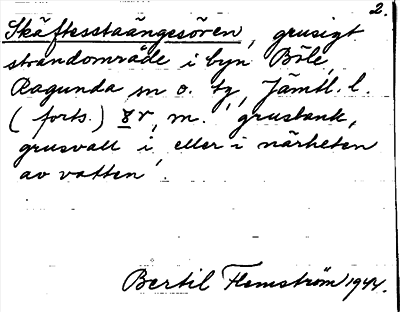 2.
Skäftesstaängesören, grusigt
strandområde i byn Böle,
Ragunda sn o. tg, Jämtl. l.
(forts.) ör, m. grusbank,
grusvall i, eller i närheten
av vatten.
Bertil Flemström 1942.